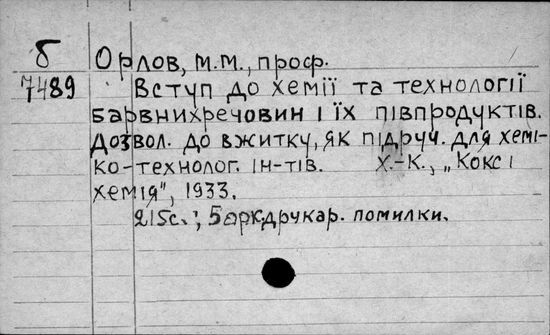 б Орлов, М.М., проф.
7489 Вступ до хемії та технології
барвнихречовин і їх півпродуктів.
Дозвол. до вжитку, як підруч. для хемі-
ко-технолог. ін-тів. Х.-К., „Кокс і
хемія", 1933.
215с.; 5 арк.друкар. помилки.